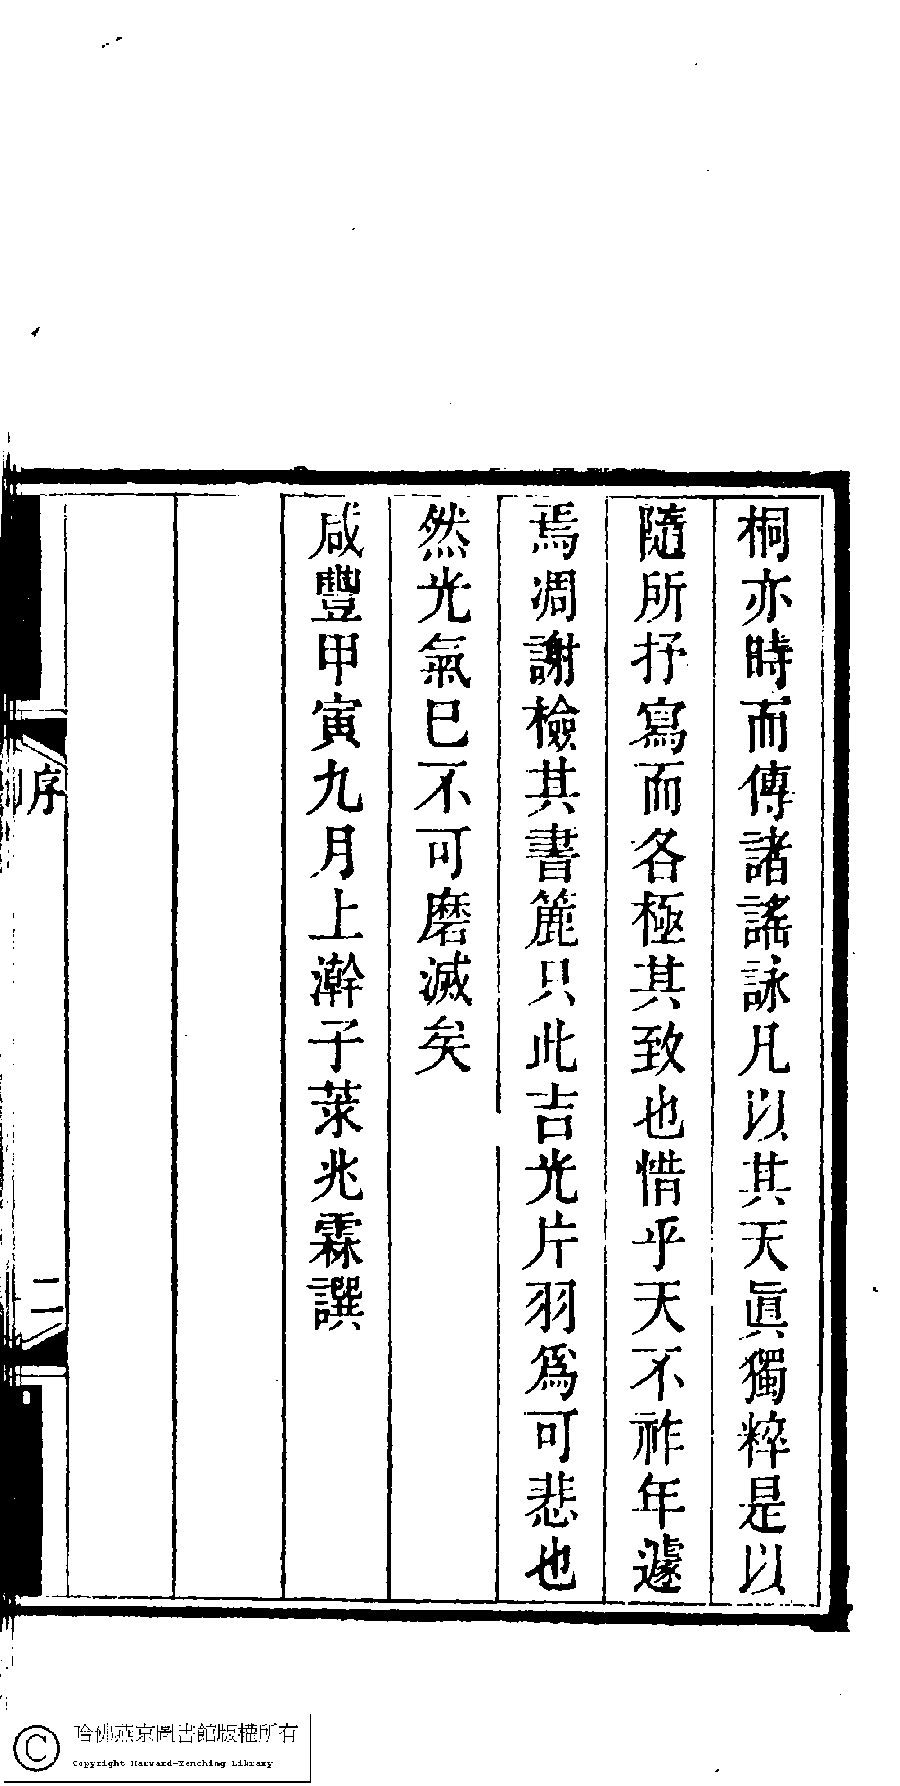 桐亦時而傳諸謠詠凡以其天眞獨粹是以
隨所抒寫而各極其致也惜乎天不祚年遽
焉凋謝檢其書簏只此吉光片羽爲可悲也
然光氣巳不可磨滅矣
咸豐甲寅九月上澣子萊兆霖譔
序
二
哈佛燕京圖書館版權所有
Copyright Harvard-Yenching Library